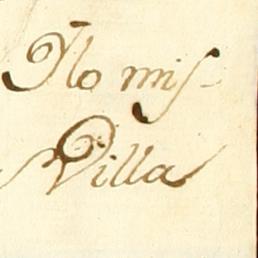 Ylo mis-
Villa